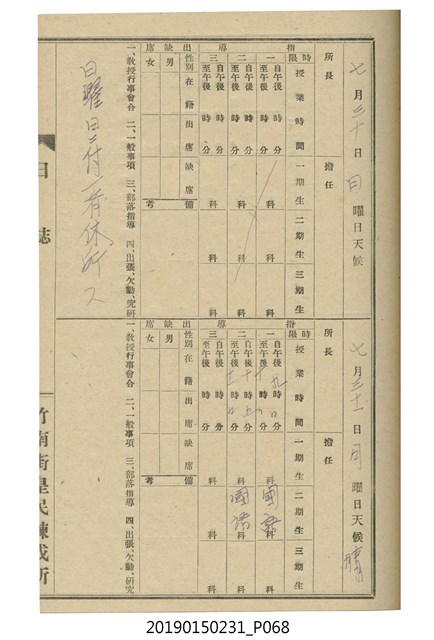 七月三十日 日曜日天候
所長 擔任
時限 授業時間 一期生 二期生 三期生
指導
一 自午後 時 分 至午後 時 分 科 科 科
二 自午後 時 分 至午後 時 分 科 科 科
三 自午後 時 分 至午後 時 分 科 科 科
出缺席 性別 在籍 出席 缺席 備考
男
女
一、教授行事會合 二、一般事項 三、部落指導 四、出張、欠勤、研究
日曜日ニ付一齊休所ス
七月三十一日 月曜日天候 晴
所長 擔任
時限 授業時間 一期生 二期生 三期生
指導
一 自午後 時 分 至午後 時 分 科 國語科 科
二 自午後 時 分 至午後 時 分 科 國語科 科
三 自午後 時 分 至午後 時 分 科 科 科
出缺席 性別 在籍 出席 缺席 備考
男
女
一、教授行事會合 二、一般事項 三、部落指導 四、出張、欠勤、研究
日誌
竹南街皇民鍊成所
20190150231_P068